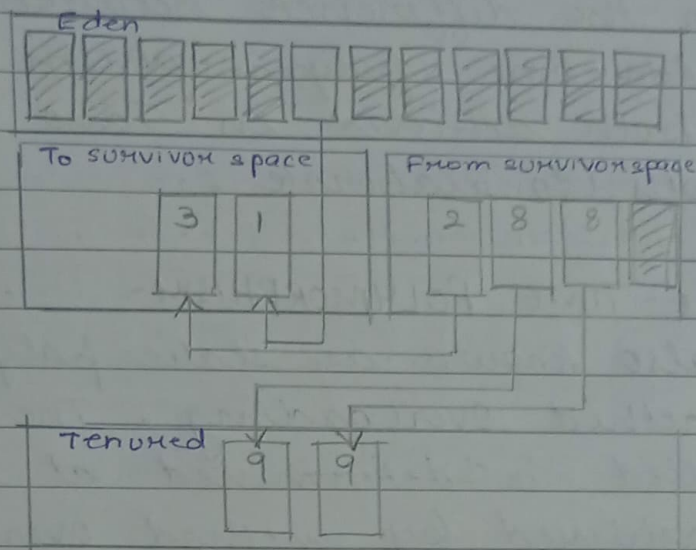 Eden
To survivor space
From survivor space
3 1
2 8 8
Tenured
9 9